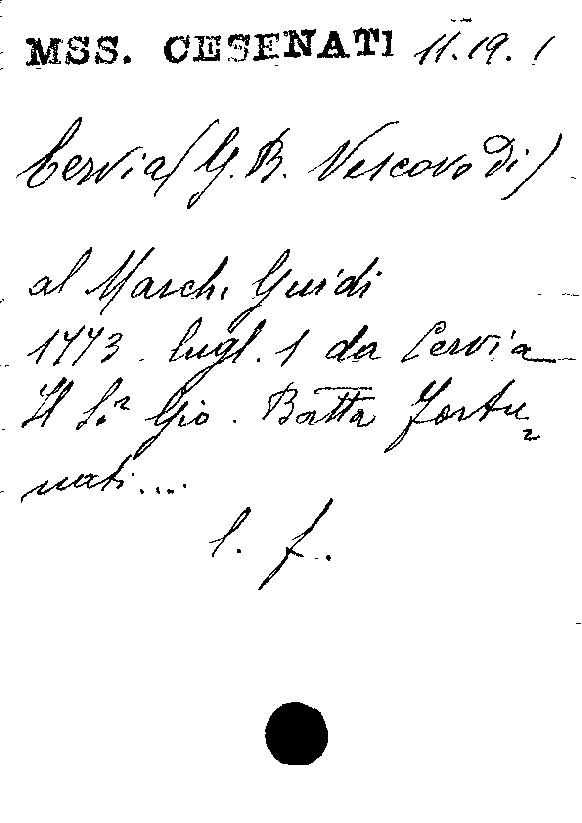 MSS. CESENATI 11.19.1
Cervia (G. B. Vescovo di)
al March. Guidi
1773. lugl. 1 da Cervia
Il Sig.r Gio. Batta Fortu=
nati....
l. f.